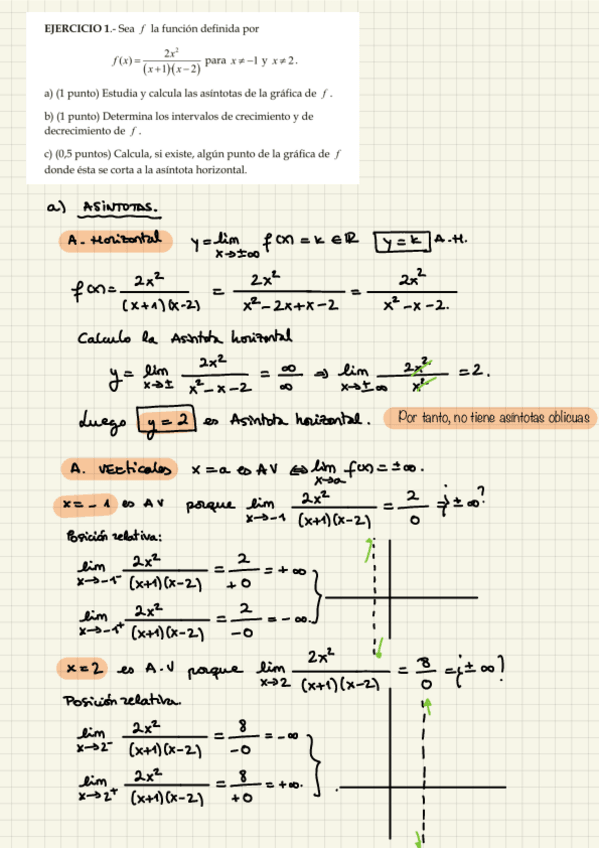 EJERCICIO 1.- Sea f la función definida por
f(x) = 2x² / (x+1)(x−2) para x ≠ −1 y x ≠ 2.
a) (1 punto) Estudia y calcula las asíntotas de la gráfica de f.
b) (1 punto) Determina los intervalos de crecimiento y de
decrecimiento de f.
c) (0,5 puntos) Calcula, si existe, algún punto de la gráfica de f
donde ésta se corta a la asíntota horizontal.
a) ASíNTOTAS.
A. Horizontal y = lim x→±∞ f(x) = k ∈ ℝ y = k A.H.
f(x) = 2x² / (x+1)(x-2) = 2x² / x²-2x+x-2 = 2x² / x²-x-2.
Calculo la Asíntota horizontal
y = lim x→± 2x² / x²-x-2 = ∞/∞ ⇒ lim x→±∞ 2x² / x² = 2.
Luego y = 2 es Asíntota horizontal. Por tanto, no tiene asíntotas oblicuas
A. Verticales x = a es AV ⇔ lim x→a f(x) = ±∞.
x = -1 es AV porque lim x→-1 2x² / (x+1)(x-2) = 2/0 = ¿±∞?
Posición relativa:
lim x→-1⁻ 2x² / (x+1)(x-2) = 2/+0 = +∞
lim x→-1⁺ 2x² / (x+1)(x-2) = 2/-0 = -∞.
x = 2 es A.V porque lim x→2 2x² / (x+1)(x-2) = 8/0 = ¿±∞?
Posición relativa.
lim x→2⁻ 2x² / (x+1)(x-2) = 8/-0 = -∞
lim x→2⁺ 2x² / (x+1)(x-2) = 8/+0 = +∞.